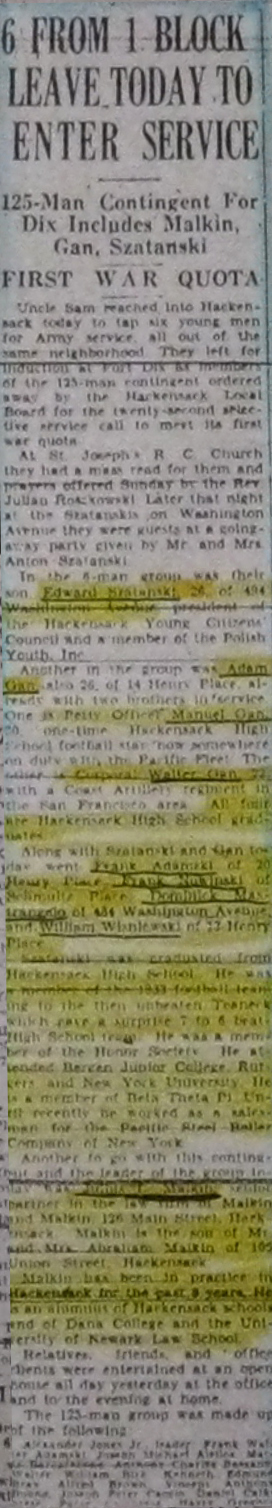 6 FROM 1 BLOCK
LEAVE TODAY TO
ENTER SERVICE
125-Man Contingent For
Dix Includes Malkin,
Gan, Szatanski
FIRST WAR QUOTA
Uncle Sam reached into Hacken-
sack today to tap six young men
for Army service, all out of the
same neighborhood. They left for
induction at Fort Dix as members
of the 125-man contingent ordered
away by the Hackensack Local
Board for the twenty-second selec-
tive service call to meet its first
war quota.
At St. Joseph's R. C. Church
they had a mass read for them and
prayers offered Sunday by the Rev.
Julian Roszkowski. Later that night
at the Szatanskis on Washington
Avenue they were guests at a going-
away party given by Mr. and Mrs.
Anton Szatanski.
In the 6-man group was their
son Edward Szatanski, 26, of 494
Washington Avenue, president of
the Hackensack Young Citizens'
Council and a member of the Polish
Youth, Inc.
Another in the group was Adam
Gan, also 26, of 14 Henry Place, al-
ready with two brothers in service.
One is Petty Officer Manuel Gan,
20, one-time Hackensack High
School football star now somewhere
on duty with the Pacific Fleet. The
other is Corporal Walter Gan, 22,
with a Coast Artillery regiment in
the San Francisco area. All four
are Hackensack High School grad-
uates.
Along with Szatanski and Gan to-
day went Frank Adamski of 20
Henry Place, Frank of
Schmultz Place, Dominick Mas-
trangelo of 484 Washington Avenue,
and William Wisniewski of 22 Henry
Place.
Szatanski was graduated from
Hackensack High School. He was
a member of the 1933 football team
ing to the then unbeaten Teaneck
which gave a surprise 7 to 6 beat-
High School team. He was a mem-
ber of the Honor Society. He at-
tended Bergen Junior College, Rut-
gers and New York University. He
is a member of Beta Theta Pi. Un-
til recently he worked as a sales-
man for the Pacific Steel Boiler
Company of New York.
Another to go with this contin-
gent and the leader of the group to-
day was Malkin, senior
partner in the law firm of Malkin
and Malkin, 126 Main Street, Hack-
ensack. Malkin is the son of Mr.
and Mrs. Abraham Malkin of 105
Union Street, Hackensack.
Malkin has been in practice in
Hackensack for the past 8 years. He
is an alumnus of Hackensack schools
and of Dana College and the Uni-
versity of Newark Law School.
Relatives, friends, and office
clients were entertained at an open
house all day yesterday at the office
and in the evening at home.
The 125-man group was made up
of the following:
Alexander Jones Jr., leader, Frank